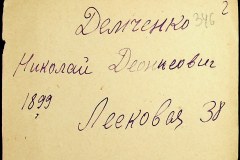 2
Демченко 346
Николай Деонисович
1899
Лесковая 38